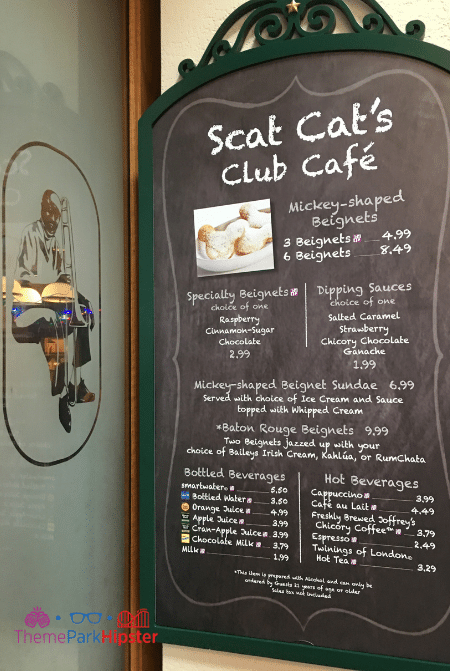 Scat Cat's
Club Café
Mickey-shaped
Beignets
3 Beignets 4.99
6 Beignets 8.49
Specialty Beignets
choice of one
Raspberry
Cinnamon-Sugar
Chocolate
2.99
Dipping Sauces
choice of one
Salted Caramel
Strawberry
Chicory Chocolate
Ganache
1.99
Mickey-shaped Beignet Sundae 6.99
Served with choice of Ice Cream and Sauce
topped with Whipped Cream
*Baton Rouge Beignets 9.99
Two Beignets Jazzed up with your
choice of Baileys Irish Cream, Kahlúa, or RumChata
Bottled Beverages
smartwater® 5.50
Bottled Water 3.50
Orange Juice 4.99
Apple Juice 3.99
Cran-Apple Juice 3.99
Chocolate Milk 3.79
Milk 1.99
Hot Beverages
Cappuccino 3.99
Café au Lait 4.49
Freshly Brewed Joffrey's
Chicory Coffee™ 3.79
Espresso 2.49
Twinings of London®
Hot Tea 3.29
*This item is prepared with Alcohol and can only be
ordered by Guests 21 years of age or older
Sales tax not included
ThemeParkHipster